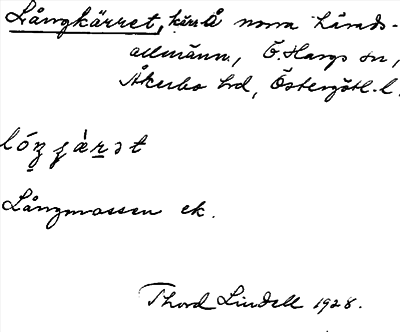 Långkärret, kärr å norra härads-
allmänn, Ö. Hargs sn,
Åkerbo hd, Östergötl. l.
Långmossen ek.
Thord Lindell 1928.